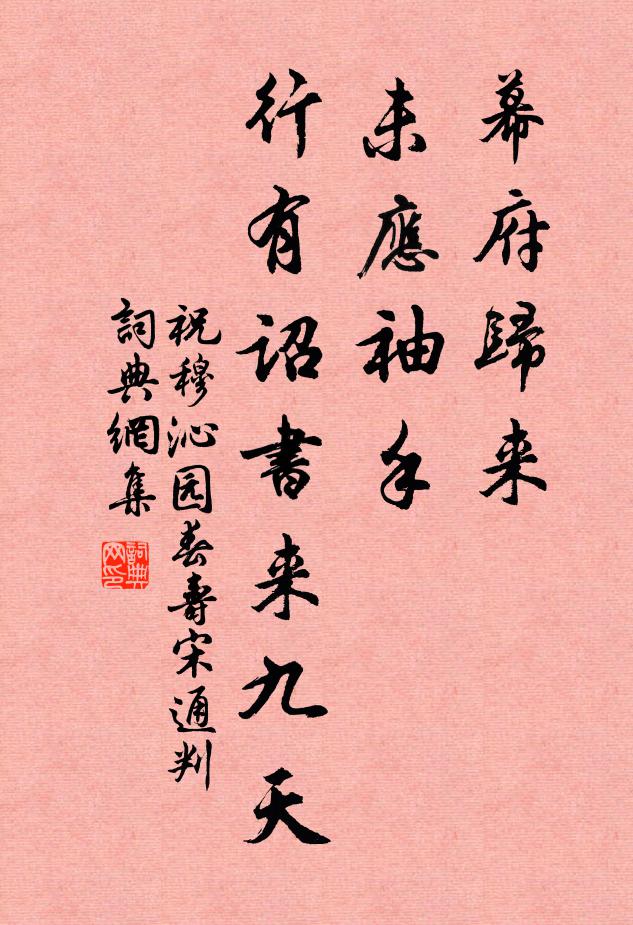 幕府歸来
未應袖手
行有詔書来九天
祝穆沁园春壽宋通判
詞典網集
詞典网印